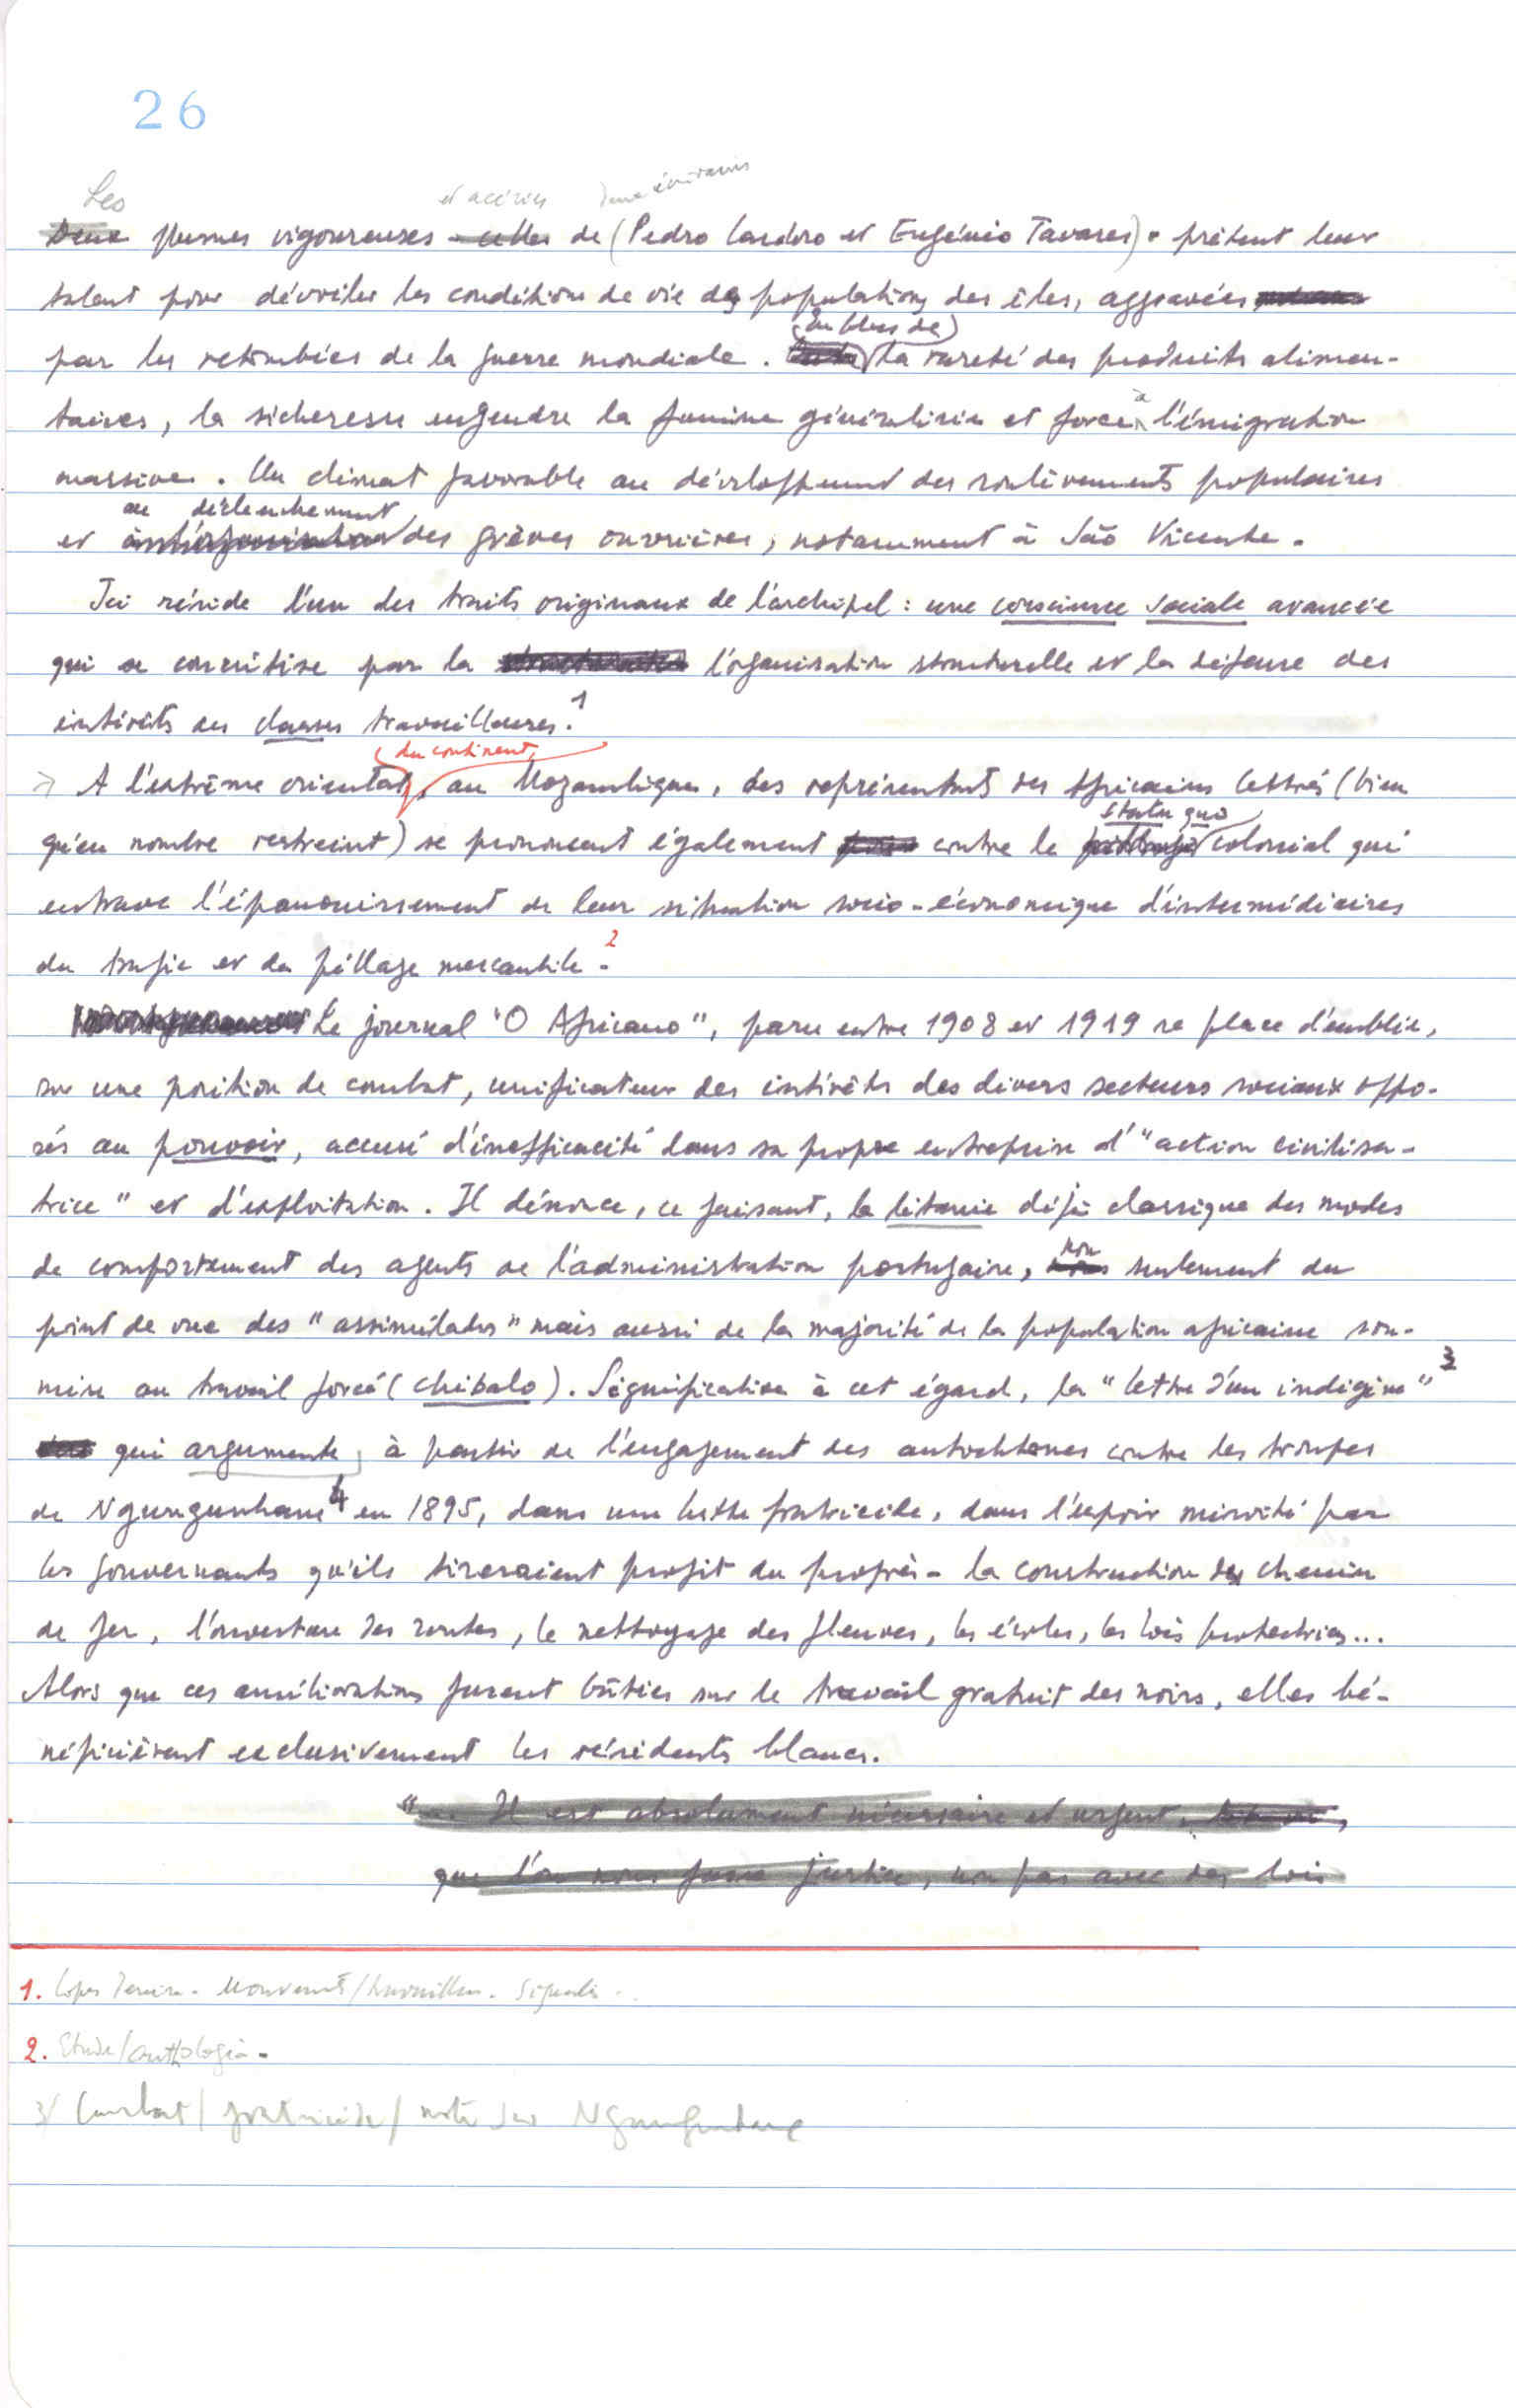 26
Les et acérées deux écrivains
Deux plumes vigoureuses - celles de (Pedro Cardoso et Eugénio Tavares) - prêtent leur
talent pour dévoiler les conditions de vie des populations des îles, aggravées
(En plus de)
par les retombées de la guerre mondiale. la rareté des produits alimen-
taires, la sécheresse engendre la famine généralisée et force à l'émigration
massive. Un climat favorable au développement des soulèvements populaires
au déclenchement
et des grèves ouvrières, notamment à São Vicente.
Ici réside l'un des traits originaux de l'archipel : une conscience sociale avancée
qui se concrétise par la l'organisation structurelle et la défense des
intérêts des classes travailleuses.1
du continent,
→ A l'extrême oriental, au Mozambique, des représentants des Africains lettrés (bien
statu quo
qu'en nombre restreint) se prononcent également contre le colonial qui
entrave l'épanouissement de leur situation socio-économique d'intermédiaires
du trafic et du pillage mercantile.2
Le journal "O Africano", paru entre 1908 et 1919 se place d'emblée,
sur une position de combat, unificateur des intérêts des divers secteurs sociaux oppo-
sés au pouvoir, accusé d'inefficacité dans sa propre entreprise d'"action civilisa-
trice" et d'exploitation. Il dénonce, ce faisant, la litanie déjà classique des modes
non
de comportement des agents de l'administration portugaise, seulement du
point de vue des "assimilados" mais aussi de la majorité de la population africaine sou-
mise au travail forcé (chibalo). Significative à cet égard, la "lettre d'un indigène"3
qui argumente, à partir de l'engagement des autochtones contre les troupes
de Ngungunhane4 en 1895, dans une lutte fratricide, dans l'espoir miroité par
les gouvernants qu'ils tireraient profit du progrès - la construction des chemin
de fer, l'ouverture des routes, le nettoyage des fleuves, les écoles, les lois protectrices...
Alors que ces améliorations furent bâties sur le travail gratuit des noirs, elles bé-
néficièrent exclusivement les résidents blancs.
"... Il est absolument nécessaire et urgent,
que l'on nous fasse justice, non pas avec des lois
1. Lopes Mouvements/travailleurs.
2. Etude/anthologie.
3/ Combat/fratricide/note sur Ngungunhane